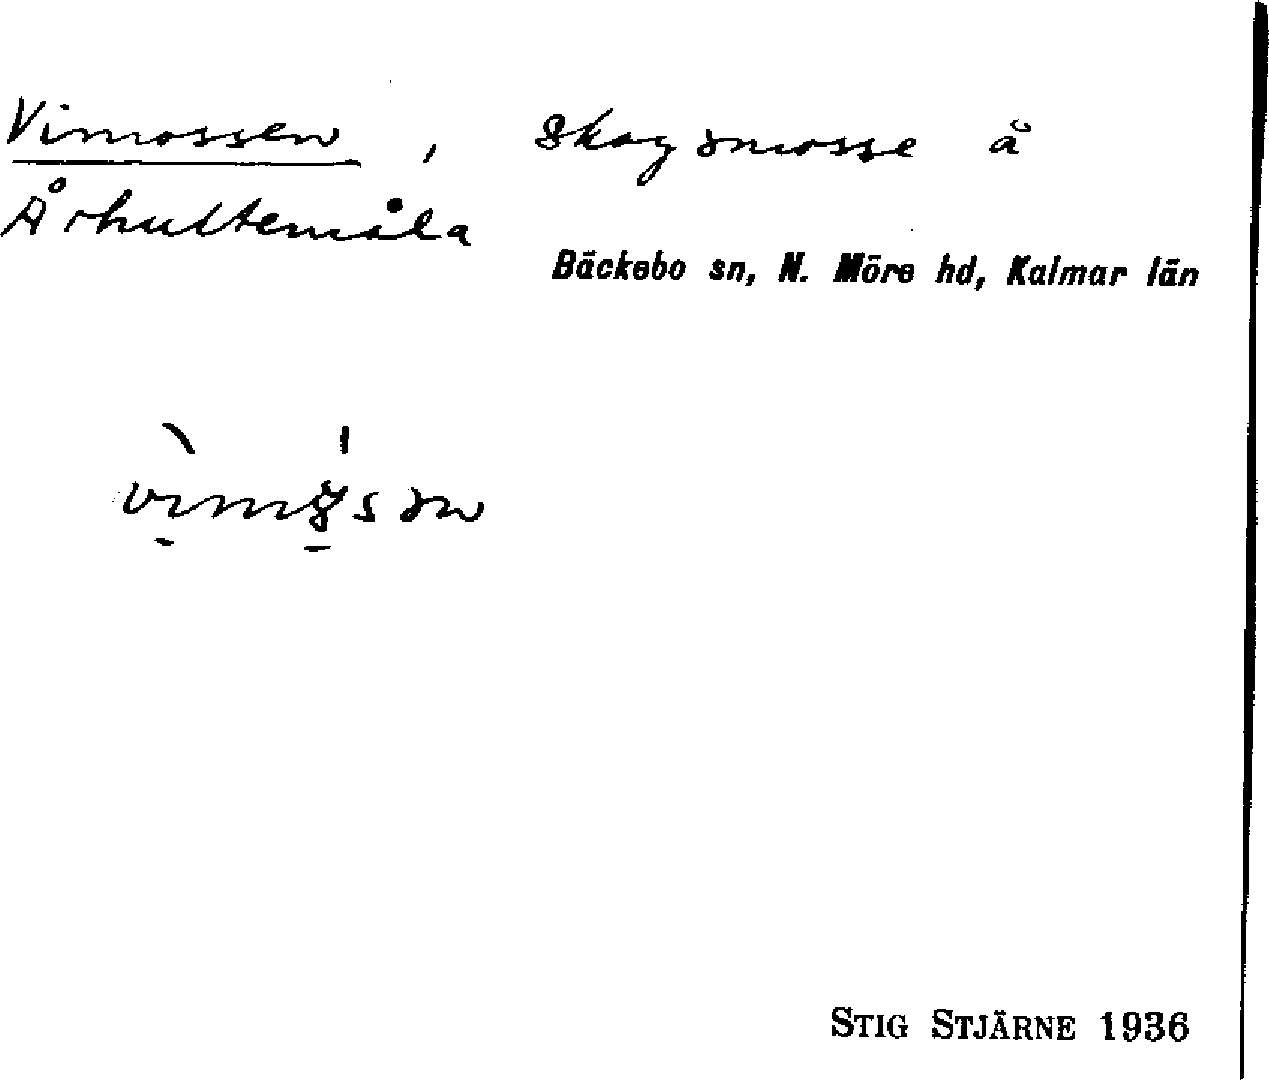 Vimossen, Skogsmosse å
Århultemåla
Bäckebo sn, N. Möre hd, Kalmar län
STIG STJÄRNE 1936